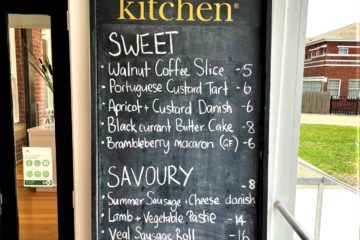 kitchen®
SWEET
• Walnut Coffee Slice - 5
• Portuguese Custard Tart - 6
• Apricot + Custard Danish - 6
• Black currant Butter Cake - 8
• Brambleberry macaron (GF) - 6
SAVOURY
• Summer Sausage + Cheese danish - 8
• Lamb + Vegetable Pastie - 14
• Veal Sausage Roll - 16